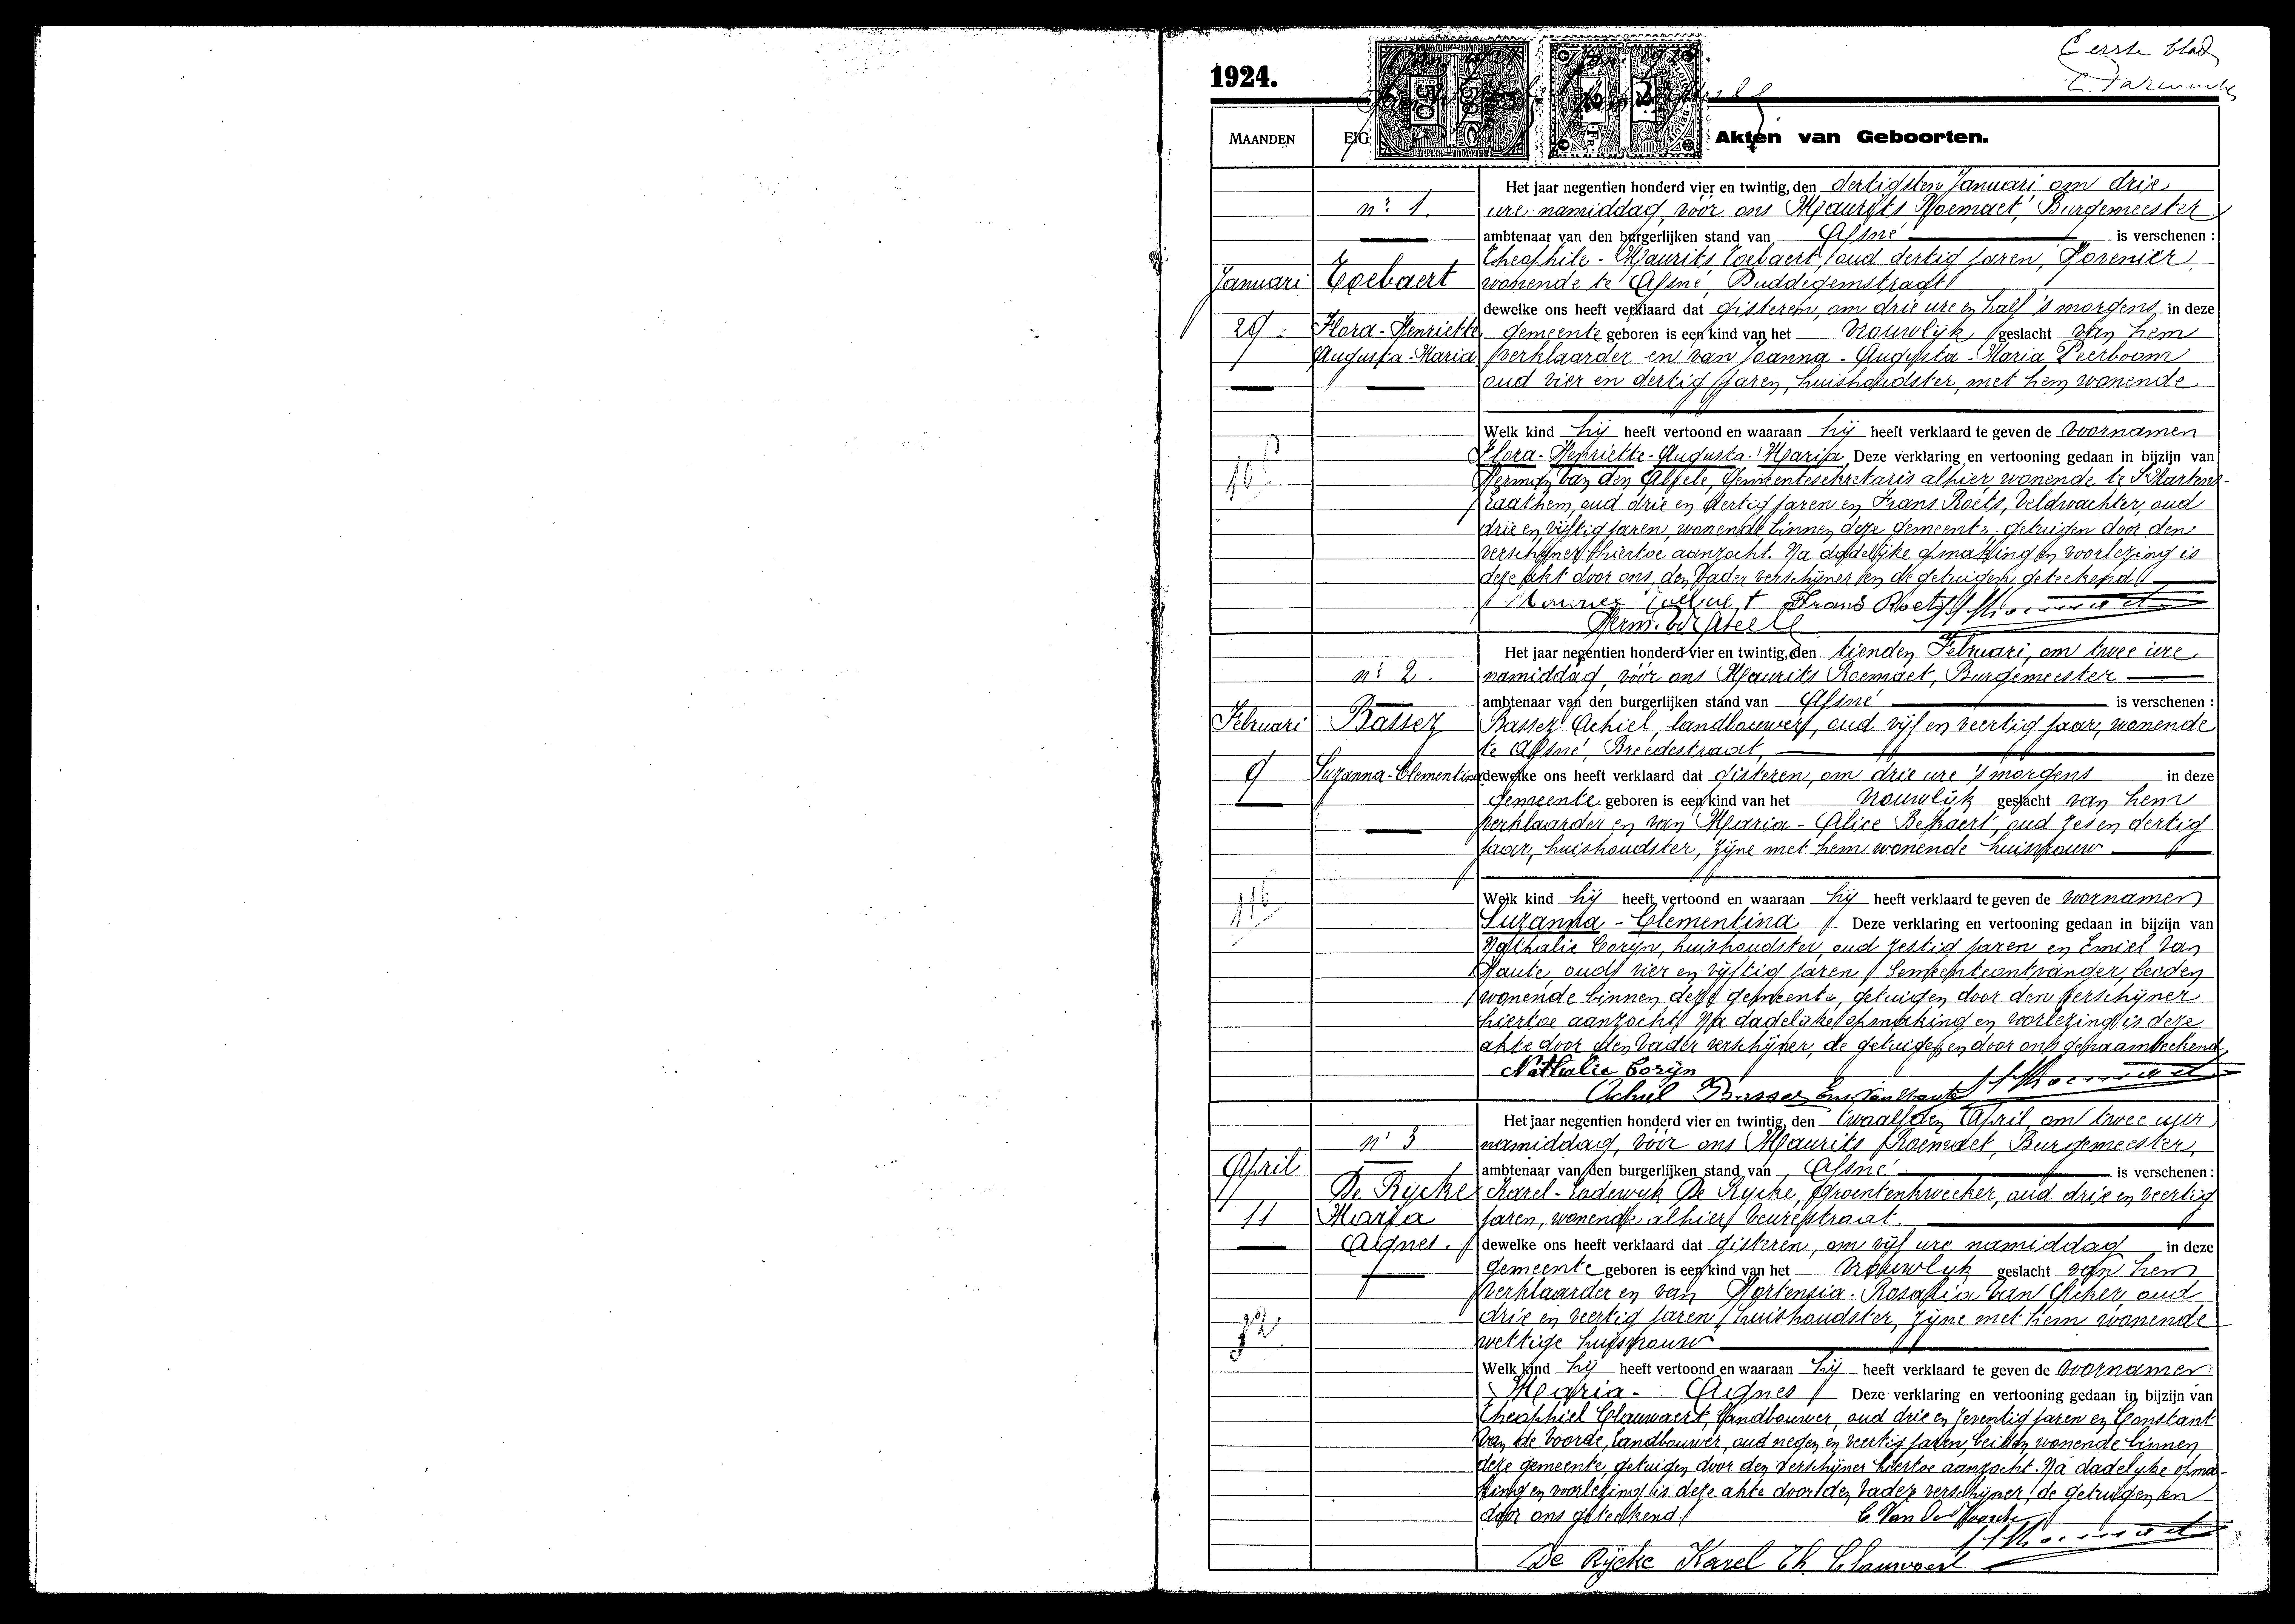 Eerste blad
1924.
MAANDEN
EIG
Akten van Geboorten.
Het jaar negentien honderd vier en twintig, den dertigsten Januari om drie
nr. 1.
ure namiddag, vóór ons Maurits Roemaet, Burgemeester
ambtenaar van den burgerlijken stand van Afsné is verschenen :
Theophile - Maurits Toebaert, oud dertig jaren, Hovenier,
Januari
Toebaert
wonende te Afsné, Buddegemstraat
dewelke ons heeft verklaard dat gisteren, om drie ure en half 's morgens in deze
29
Flora - Henriette
gemeente geboren is een kind van het vrouwlijk geslacht van hem
Augusta - Maria
verklaarder en van Joanna - Augusta - Maria Peerboom
oud vier en dertig jaren, huishoudster, met hem wonende
Welk kind hij heeft vertoond en waaraan hij heeft verklaard te geven de voornamen
Flora - Henriette - Augusta - Maria Deze verklaring en vertooning gedaan in bijzijn van
Herman Van den Abeele, Gemeentesekretaris alhier, wonende te St Martens-
Laathem, oud drie en dertig jaren en Frans Roets, Veldwachter, oud
drie en vijftig jaren, wonende binnen deze gemeente, getuigen door den
verschijner hiertoe aanzocht. Na dadelijke opmaking en voorlezing is
deze akt door ons, den Vader verschijner en de getuigen geteekend
Frans Roets
Herm. Vd Abeele
Het jaar negentien honderd vier en twintig, den tienden Februari, om twee ure
nr. 2.
namiddag, vóór ons Maurits Roemaet, Burgemeester
ambtenaar van den burgerlijken stand van Afsné is verschenen :
Februari
Bassez
Bassez Achiel, landbouwer, oud vijf en veertig jaar, wonende
te Afsné, Breedestraat,
9
Suzanna - Clementina
dewelke ons heeft verklaard dat gisteren, om drie ure 's morgens in deze
gemeente geboren is een kind van het vrouwlijk geslacht van hem
verklaarder en van Maria - Alice Bekaert, oud zes en dertig
jaar, huishoudster, zijne met hem wonende huisvrouw
Welk kind hij heeft vertoond en waaraan hij heeft verklaard te geven de voornamen
Suzanna - Clementina Deze verklaring en vertooning gedaan in bijzijn van
Nathalie Coryn, huishoudster, oud zestig jaren en Emiel Van
Haute, oud vier en vijftig jaren, Gemeenteontvanger, beiden
wonende binnen deze gemeente, getuigen door den verschijner
hiertoe aanzocht. Na dadelijke opmaking en voorlezing is deze
akte door den Vader verschijner, de getuigen en door ons genaamteekend
Nathalie Coryn
Achiel Bassez Em. Van Haute
Het jaar negentien honderd vier en twintig, den twaalfden April om twee uur
nr 3
namiddag, vóór ons Maurits Roemaet, Burgemeester,
April
ambtenaar van den burgerlijken stand van Afsné is verschenen :
De Rycke
Karel - Lodewyk De Rycke, groentenkweeker, oud drie en veertig
11
Maria
jaren, wonende alhier Veurestraat.
Agnes.
dewelke ons heeft verklaard dat gisteren, om vijf ure namiddag in deze
gemeente geboren is een kind van het vrouwlyk geslacht van hem
verklaarder en van Hortensia - Rosalia Van Acker, oud
drie en veertig jaren, huishoudster, zijne met hem wonende
wettige huisvrouw
Welk kind hij heeft vertoond en waaraan hij heeft verklaard te geven de voornamen
Maria - Agnes Deze verklaring en vertooning gedaan in bijzijn van
Theophiel Clauwaert, Landbouwer, oud drie en zeventig jaren en Constant
Van de Voorde, Landbouwer, oud negen en veertig jaren, beiden wonende binnen
deze gemeente, getuigen door den verschijner hiertoe aanzocht. Na dadelyke opma-
king en voorlezing is deze akte door den Vader verschijner, de getuigen en
door ons geteekend.
C Van De Voorde
De Rijcke Karel Th. Clauwaert